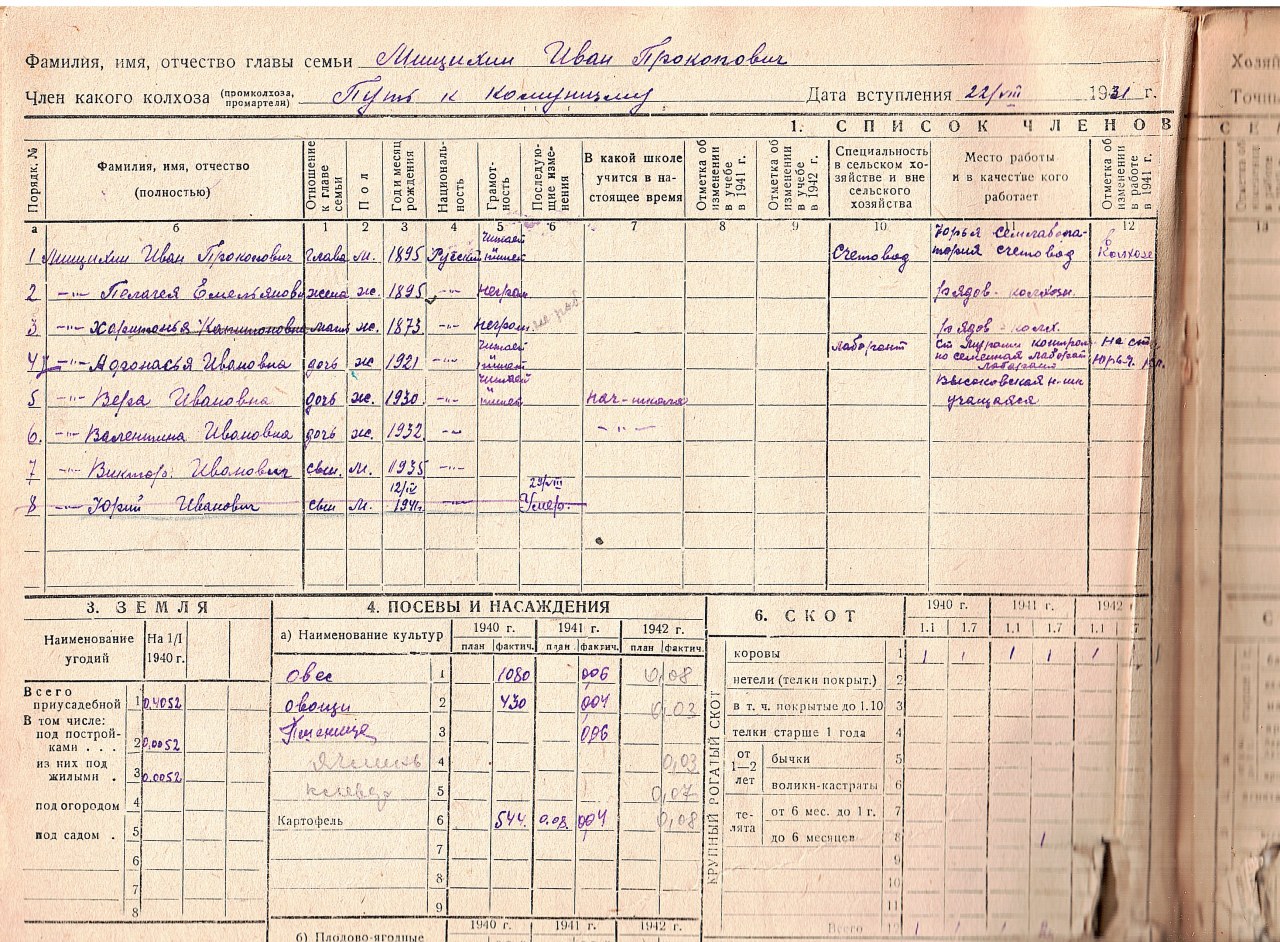 Фамилия, имя, отчество главы семьи Мищихин Иван Прокопович
Член какого колхоза (промколхоза, промартели) Путь к Комунизму Дата вступления 22/VIII 1931 г.
1. СПИСОК ЧЛЕНОВ
Порядк. № Фамилия, имя, отчество (полностью) Отношение к главе семьи Пол Год и месяц рождения Националь-ность Грамот-ность Последую-щие изме-нения В какой школе учится в на-стоящее время Отметка об изменении в учебе в 1941 г. Отметка об изменении в учебе в 1942 г. Специальность в сельском хо-зяйстве и вне сельского хозяйства Место работы и в качестве кого работает Отметка об изменении в работе в 1941 г.
а б 1 2 3 4 5 6 7 8 9 10 11 12
1 Мищихин Иван Прокопович глава м. 1895 Русский читает пишет Счетовод Юрья счетовод Колхозе
2 -"- Пелагея Емельяновн жена ж. 1895 -"- неграм. рядов. колхозн.
3 -"- Харитонья Капитоновна мать ж. 1873 -"- неграм. рядов. колх.
4 -"- Афонасья Ивановна дочь ж 1921 -"- читает пишет лаборант
5 -"- Вера Ивановна дочь ж. 1930 -"- читает пишет нач-школа Высоковская н-шк учащаяся
6. -"- Валентина Ивановна дочь ж. 1932 -"- -"-
7 -"- Виктор. Иванович сын. м. 1935 -"-
8 -"- Юрий Иванович сын м. 12/IV 1941г. -"- 29/VIII Умер.
3. ЗЕМЛЯ
Наименование угодий На 1/I 1940 г.
Всего приусадебной 1 0,4052
В том числе:
под построй-ками . . . 2 0,0052
из них под жилыми . 3 0.0052
под огородом 4
под садом . 5
6
7
8
4. ПОСЕВЫ И НАСАЖДЕНИЯ
а) Наименование культур 1940 г. 1941 г. 1942 г.
план фактич. план фактич. план фактич.
овес 1 1080 006 0,08
овощи 2 430 004 0,03
Пшеница 3 006
Ячмень 4 0,03
клевер 5 0,07
Картофель 6 544 0.08 004 0,08
7
8
9
б) Плодово-ягодные 1940 г. 1941 г. 1942 г.
6. СКОТ
1940 г. 1941 г. 1942 г
1.1 1.7 1.1 1.7 1.1 7
КРУПНЫЙ РОГАТЫЙ СКОТ
коровы 1 1 1 1 1 1
нетели (телки покрыт.) 2
в т. ч. покрытые до 1.10 3
телки старше 1 года 4
от 1—2 лет бычки 5
волики-кастраты 6
те-лята от 6 мес. до 1 г. 7
до 6 месяцев 8 1
9
10
11
Всего 12
Хозяй
Точны